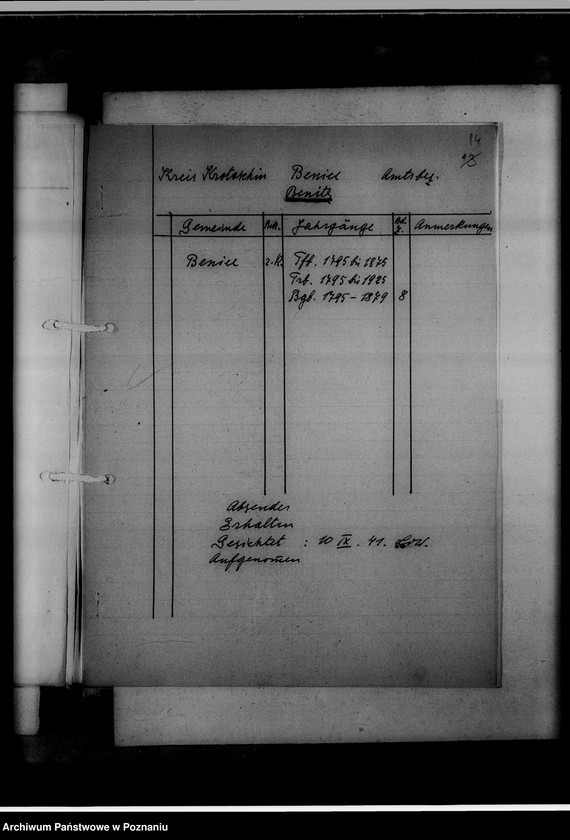 14
Kreis Krotoschin Benice Amtsbez.
Benitz
Gemeinde Bek. Jahrgänge Bd. Z. Anmerkungen
Benice r.k. Tfb. 1795 bis 1875
Trb. 1795 bis 1925
Bgb. 1795 - 1879 8
Absender
Erhalten
Gesichtet : 10 IX. 41.
Aufgenomen
Archiwum Państwowe w Poznaniu